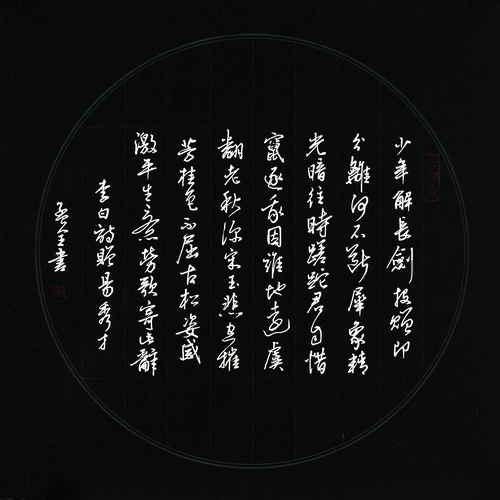 少年解長劍投贈即
分離何不斷犀象精
光暗往時蹉跎君自惜
竄逐我因誰地遠虞
翻老秋深宋玉悲空摧
芳桂色不屈古松姿感
激平生意勞歌寄此辭
李白詩贈易秀才
書